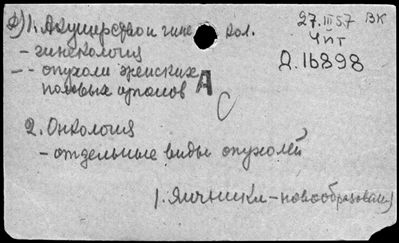 1. Акушерство и гинекол.
27.III 57 ВК
ЧЙТ
Д.16898
- гинекология
-- опухоли женских
половых органов А
С
2. Онкология
- отдельные виды опухолей
1. Яичники - новообразования